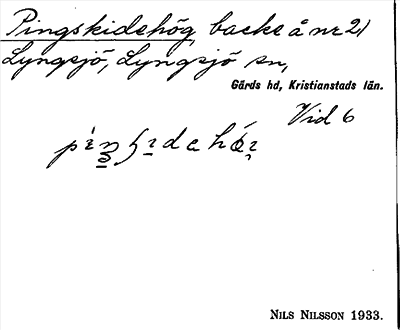 Pingskidehög, backe å nr 21
Lyngsjö, Lyngsjö sn,
Gärds hd, Kristianstads län.
Vid 6
NILS NILSSON 1933.